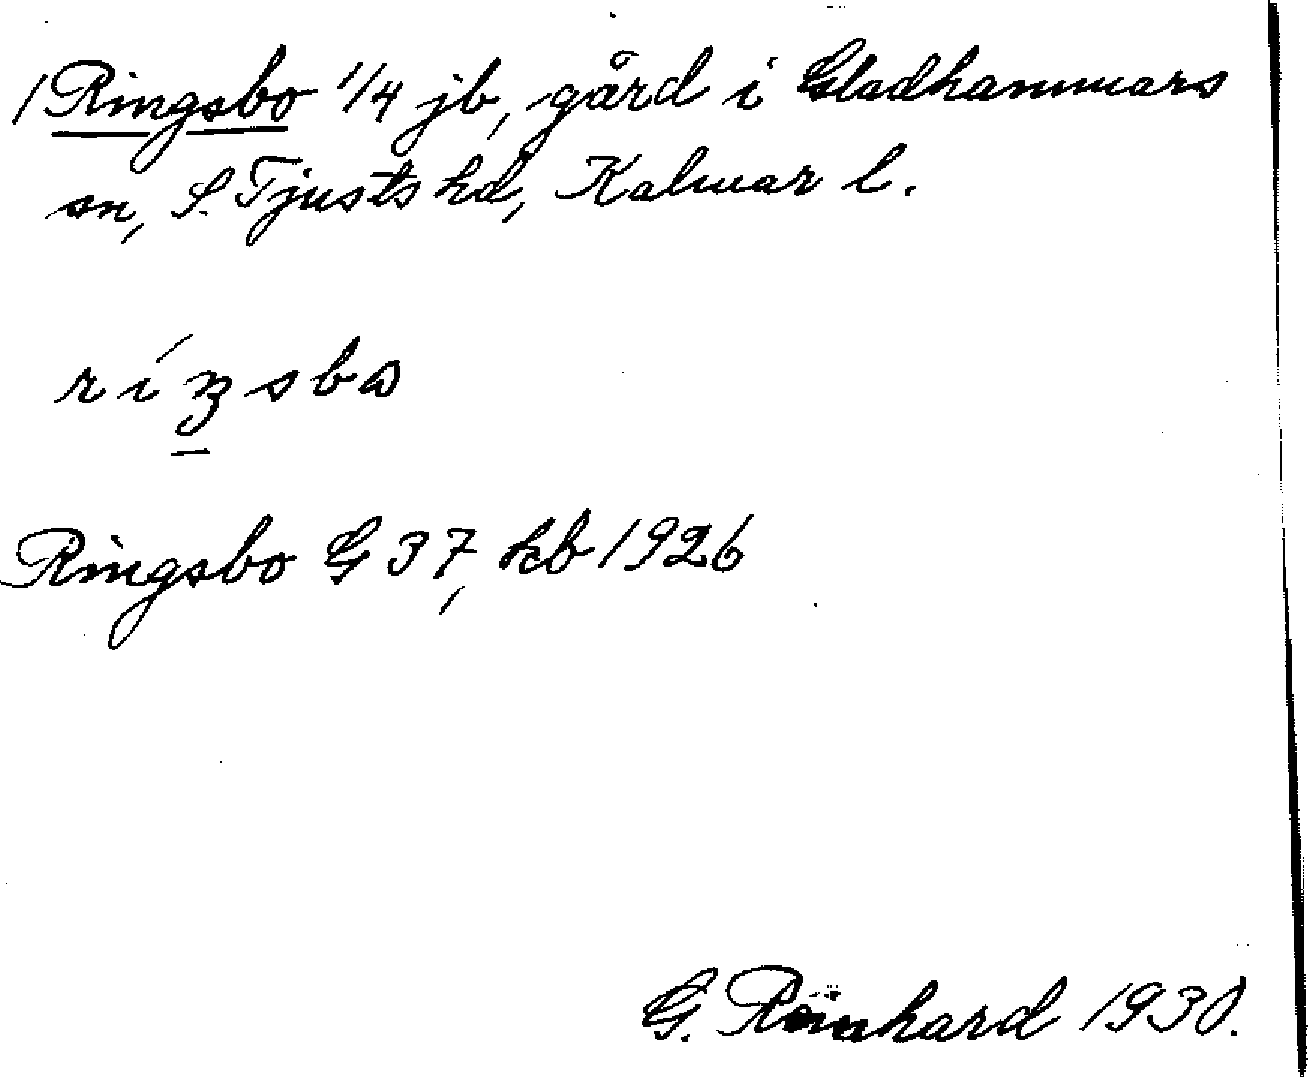 /Ringsbo 1/4 jb, gård i Gladhammars
sn, S. Tjusts hd, Kalmar l.
ríŋsbω
Ringsbo G 37, kb 1926
G. Rönhard 1930.